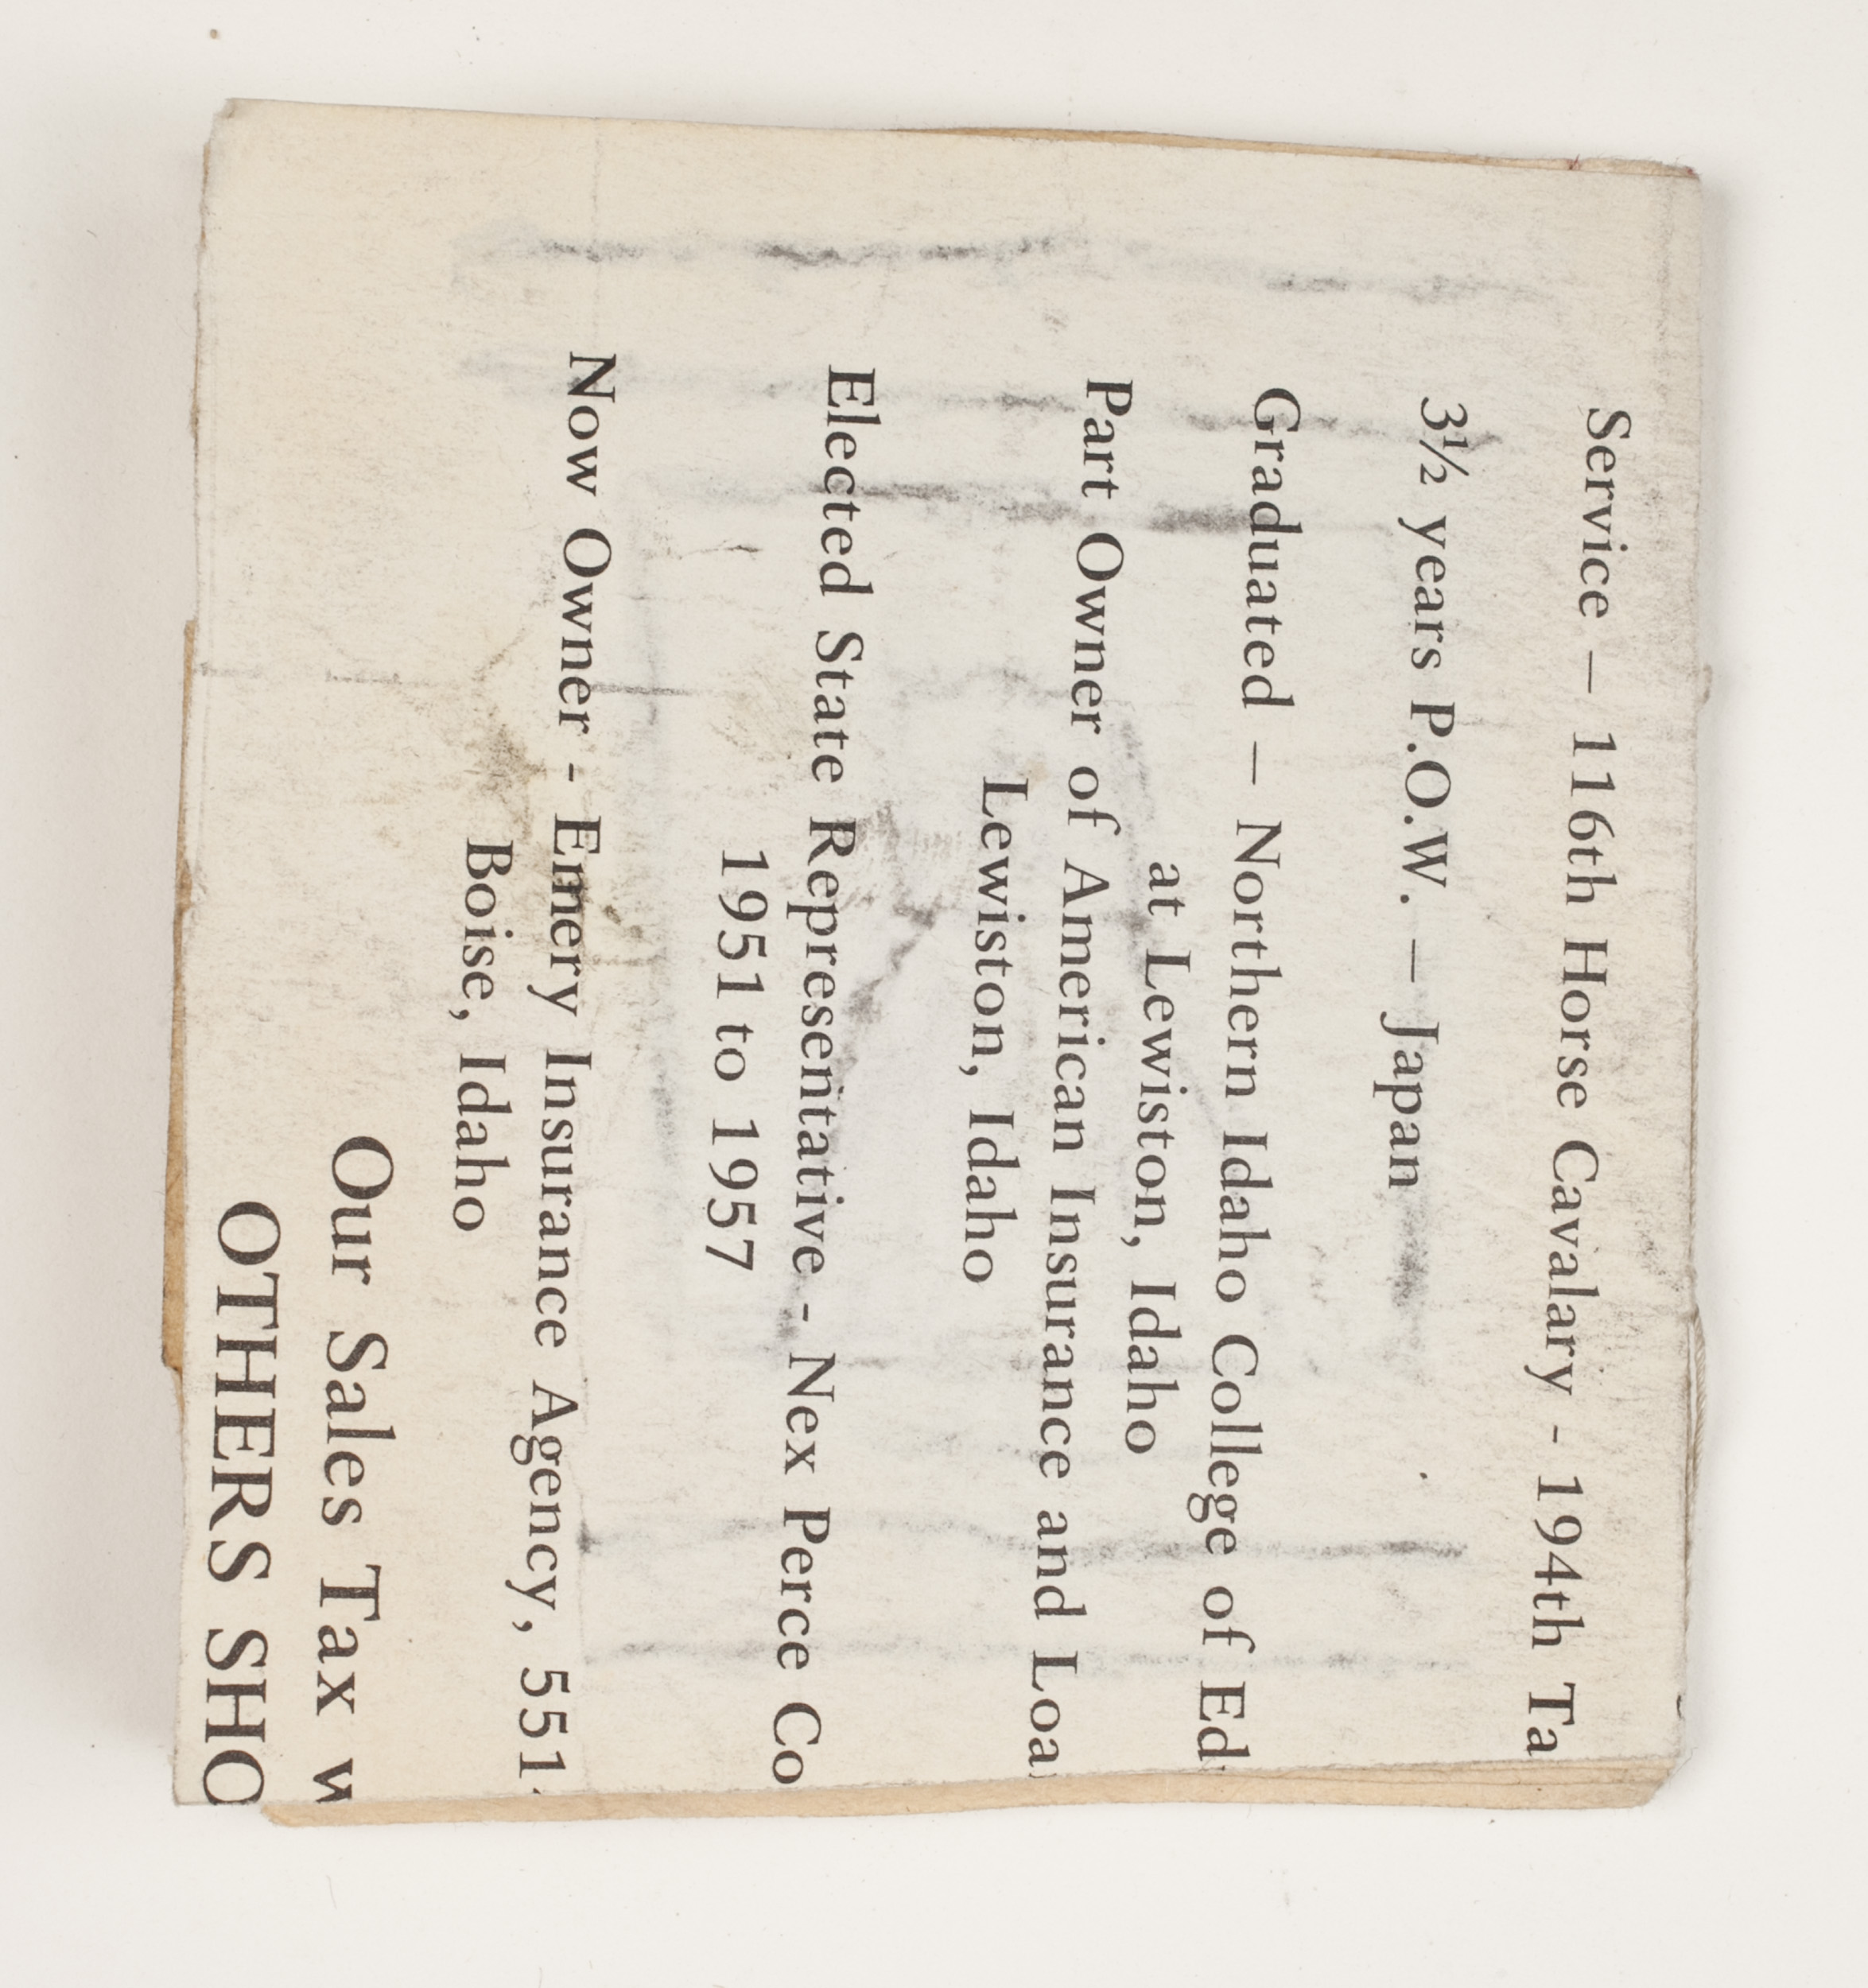 Service — 116th Horse Cavalary - 194th Ta
3½ years P.O.W. — Japan
Graduated — Northern Idaho College of Ed
at Lewiston, Idaho
Part Owner of American Insurance and Loa
Lewiston, Idaho
Elected State Representative - Nex Perce Co
1951 to 1957
Now Owner - Emery Insurance Agency, 551
Boise, Idaho
Our Sales Tax w
OTHERS SHO